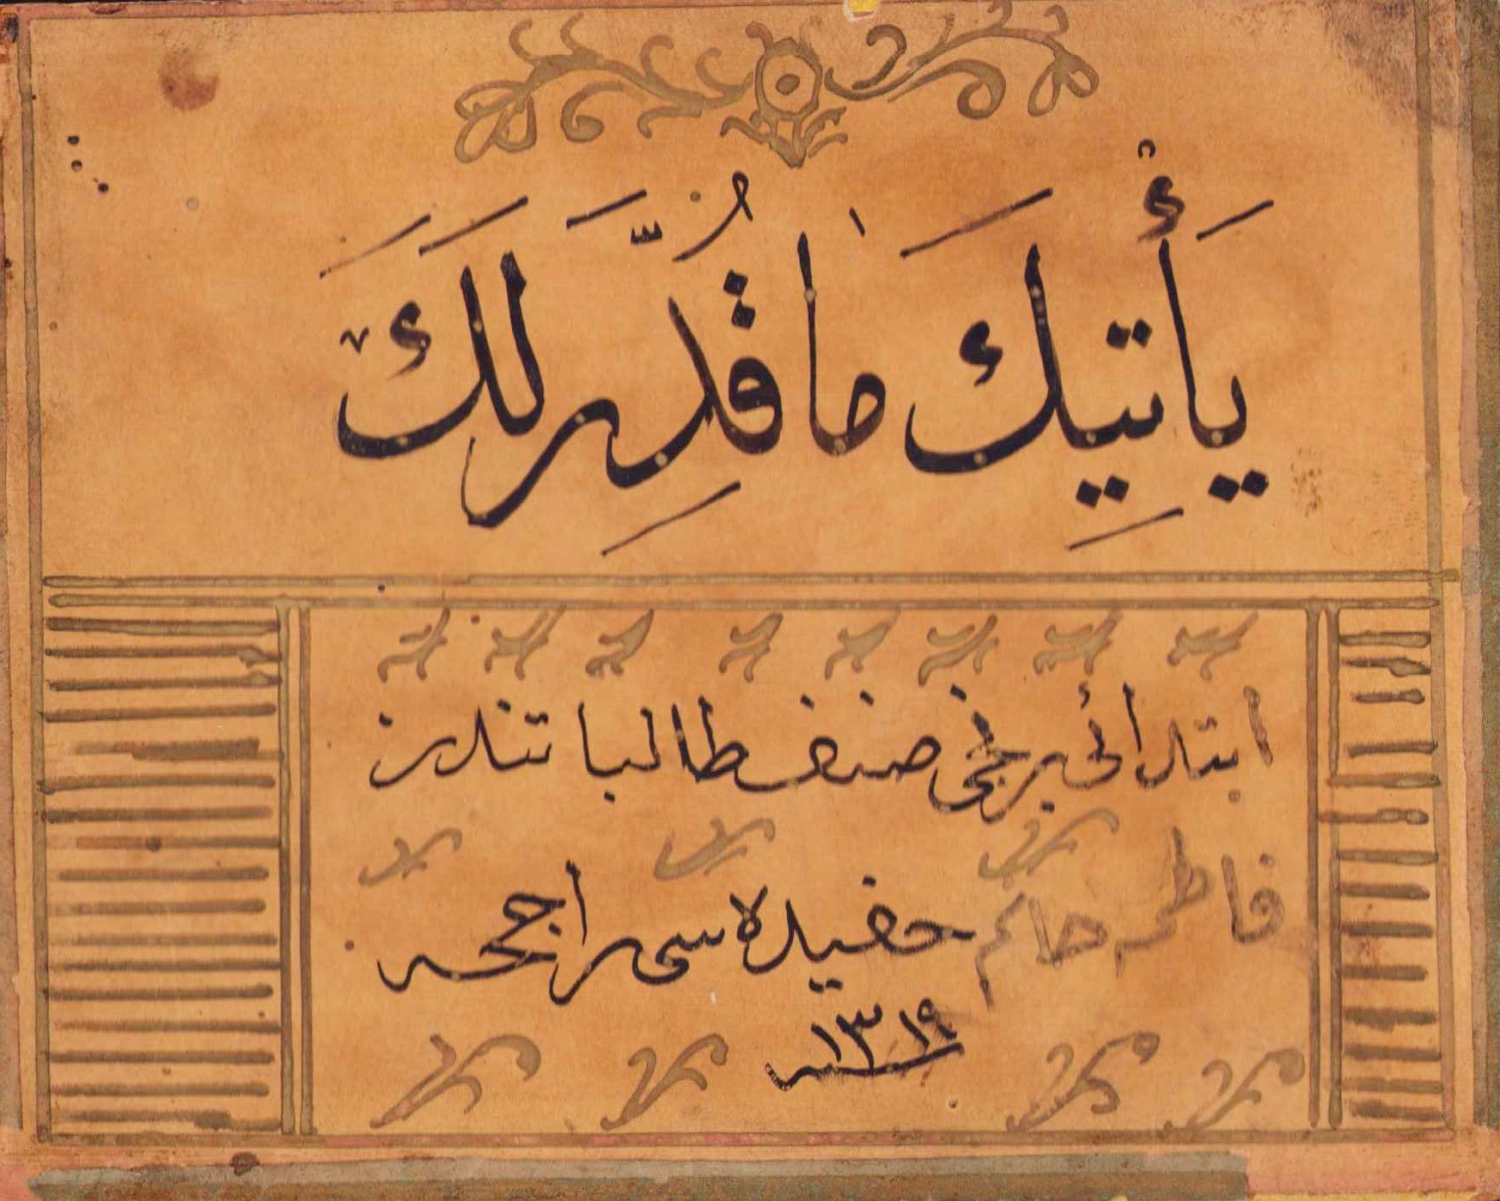 يَأْتِيكَ مَا قُدِّرَ لَكَ
ابتدائی برنجی صنف طالباتندن
فاطمه خانم حفیده سی راجحه
سنه ١٣١٩